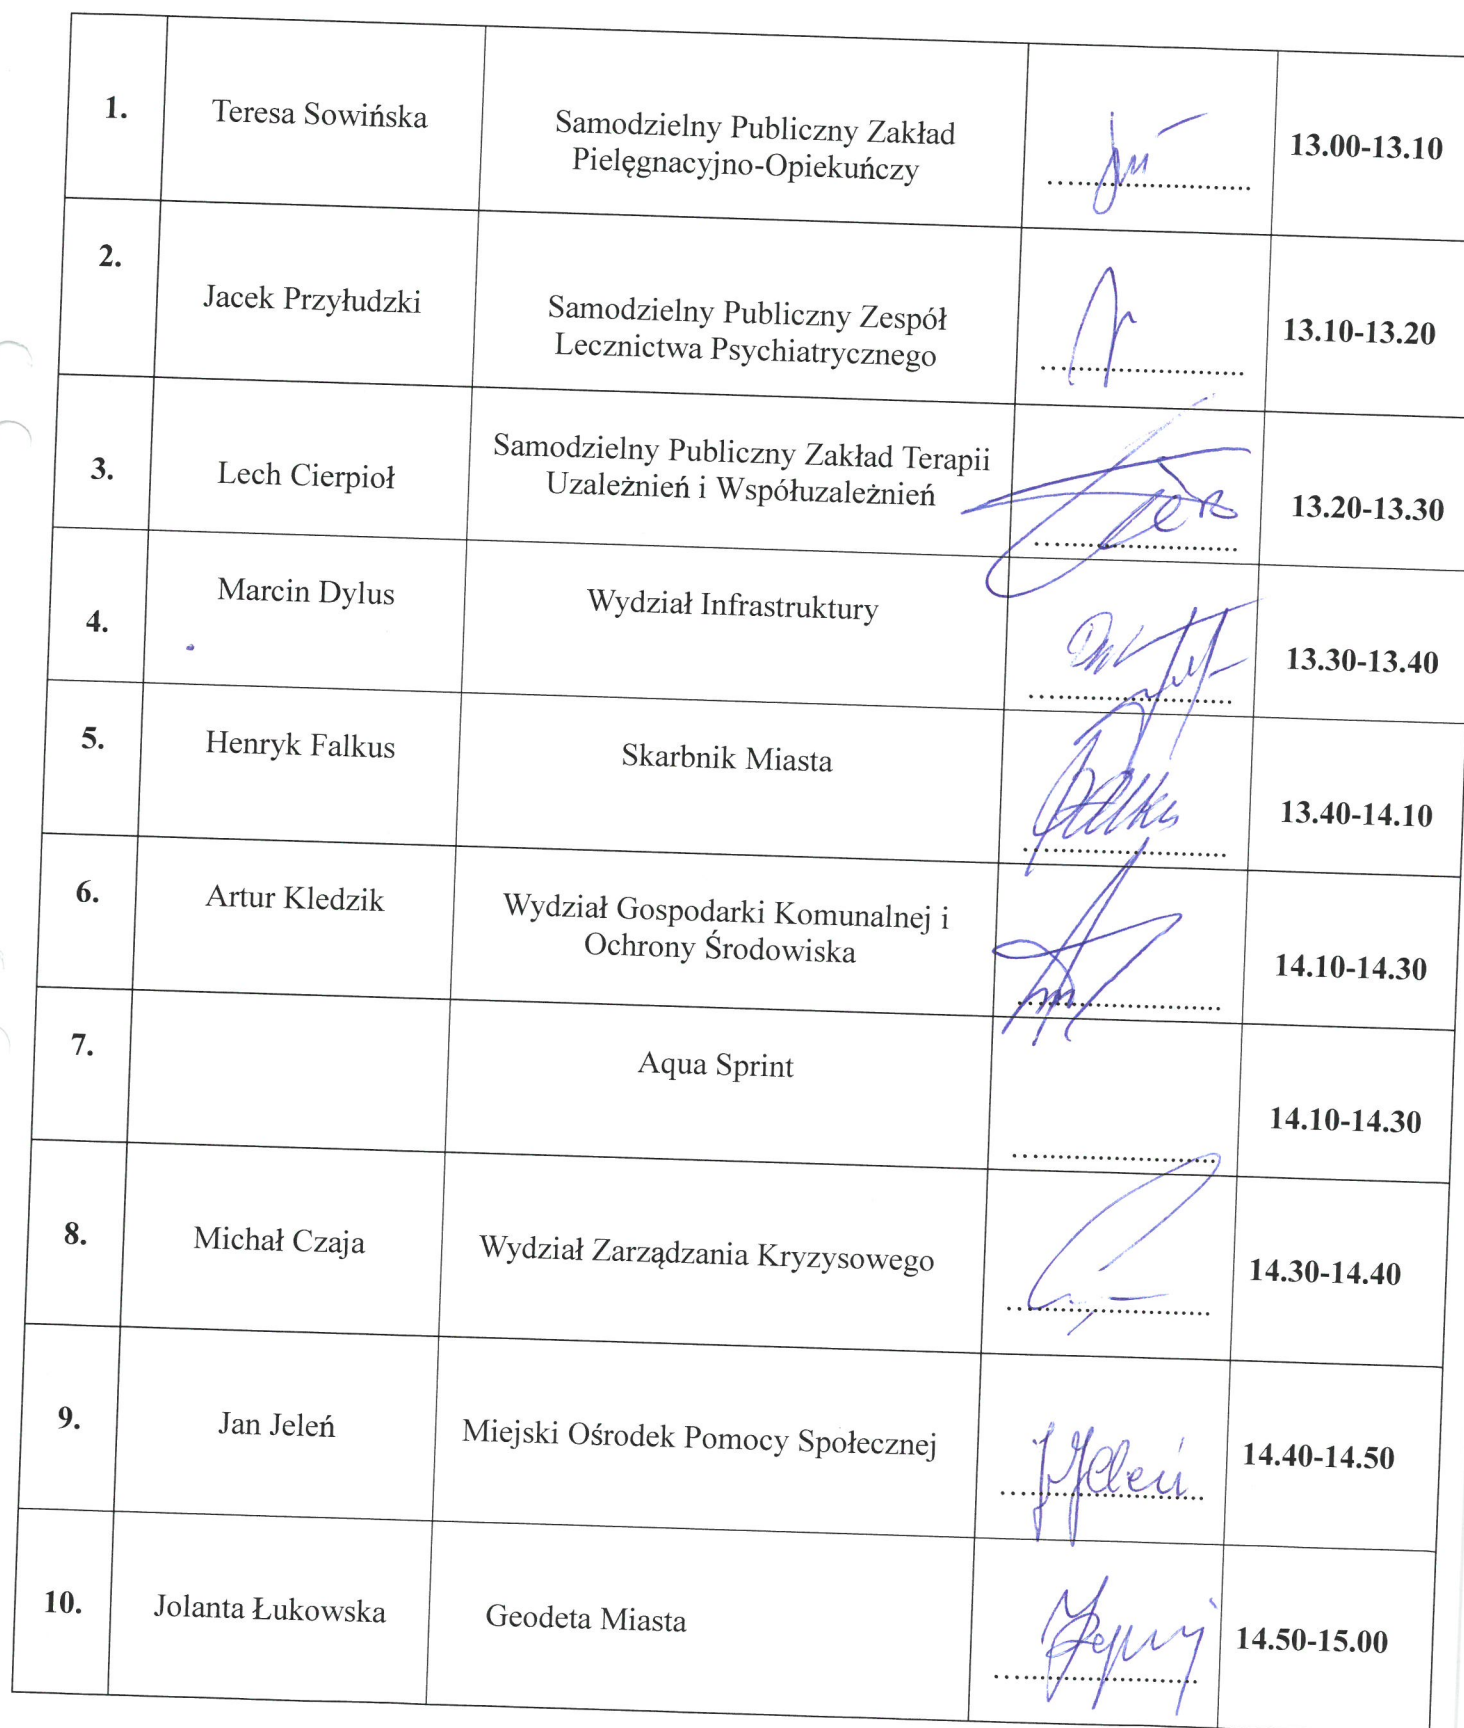 1.
Teresa Sowińska
Samodzielny Publiczny Zakład
Pielęgnacyjno-Opiekuńczy
....................
13.00-13.10
2.
Jacek Przyłudzki
Samodzielny Publiczny Zespół
Lecznictwa Psychiatrycznego
....................
13.10-13.20
3.
Lech Cierpioł
Samodzielny Publiczny Zakład Terapii
Uzależnień i Współuzależnień
....................
13.20-13.30
4.
Marcin Dylus
Wydział Infrastruktury
....................
13.30-13.40
5.
Henryk Falkus
Skarbnik Miasta
....................
13.40-14.10
6.
Artur Kledzik
Wydział Gospodarki Komunalnej i
Ochrony Środowiska
....................
14.10-14.30
7.
Aqua Sprint
....................
14.10-14.30
8.
Michał Czaja
Wydział Zarządzania Kryzysowego
....................
14.30-14.40
9.
Jan Jeleń
Miejski Ośrodek Pomocy Społecznej
J Jeleń
....................
14.40-14.50
10.
Jolanta Łukowska
Geodeta Miasta
....................
14.50-15.00